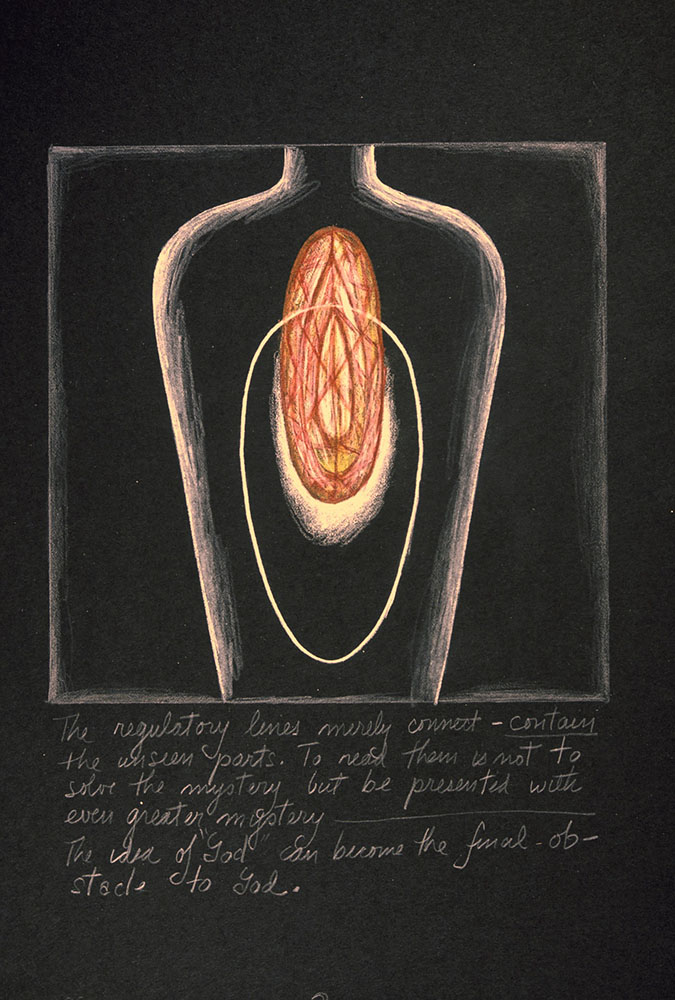 The regulatory lines merely connect – contain
the unseen parts. To read them is not to
solve the mystery but be presented with
even greater mystery ———
The idea of "God" can become the final ob–
stacle to God.